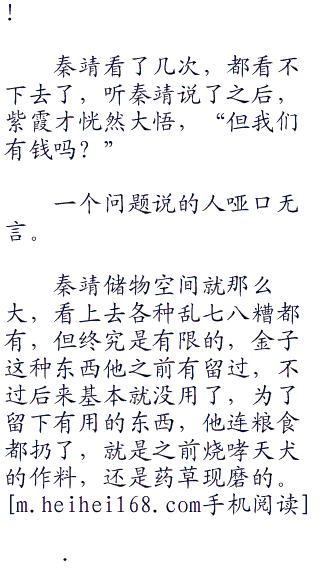 !
秦靖看了几次，都看不
下去了，听秦靖说了之后，
紫霞才恍然大悟，“但我们
有钱吗？”
一个问题说的人哑口无
言。
秦靖储物空间就那么
大，看上去各种乱七八糟都
有，但终究是有限的，金子
这种东西他之前有留过，不
过后来基本就没用了，为了
留下有用的东西，他连粮食
都扔了，就是之前烧哮天犬
的作料，还是药草现磨的。
[m.heihei168.com手机阅读]
.